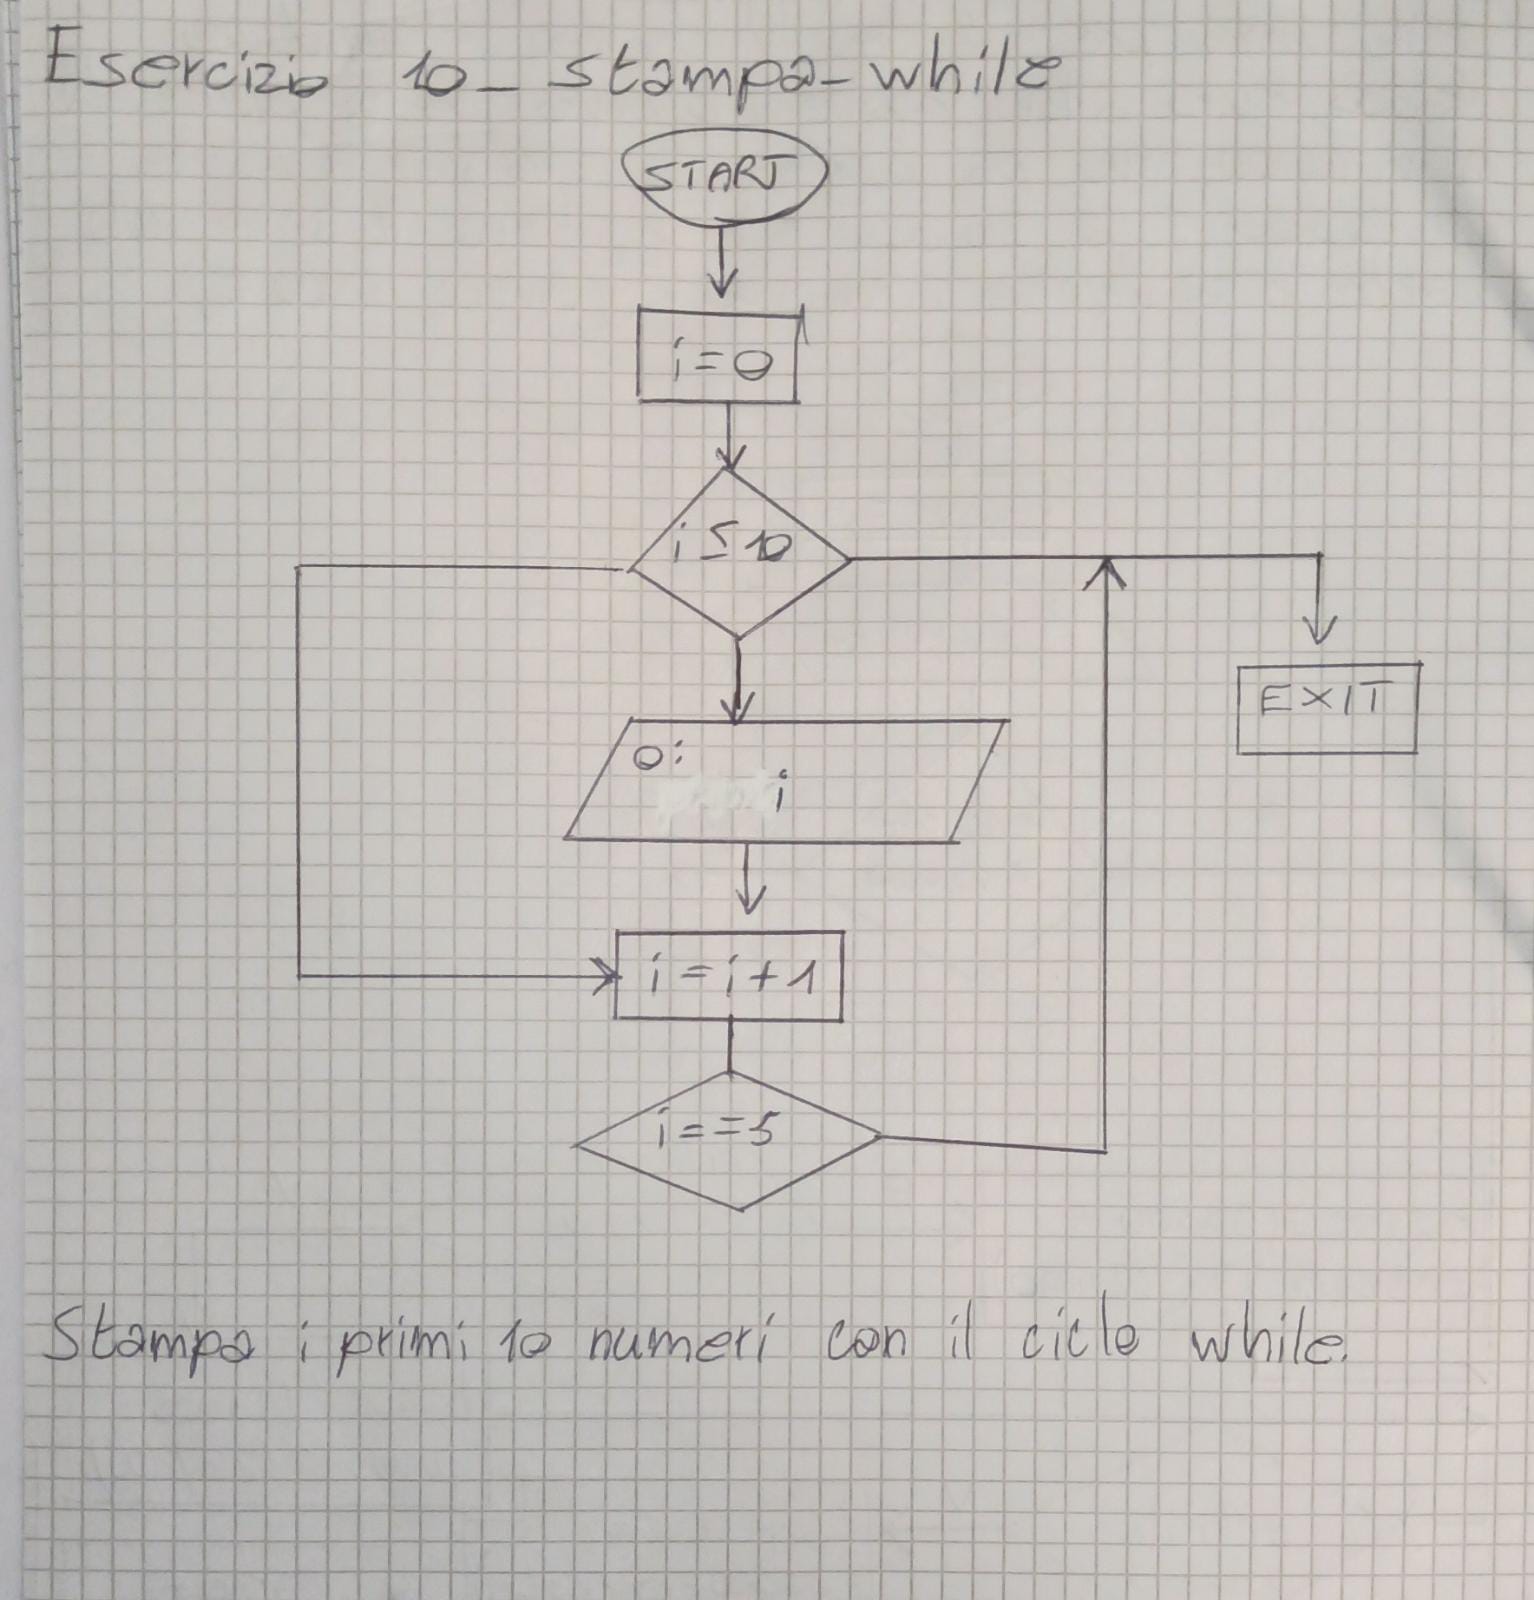 Esercizio 10_stampa_while
START
i=0
i≤10
EXIT
O:
i
i=i+1
i==5
Stampa i primi 10 numeri con il ciclo while.